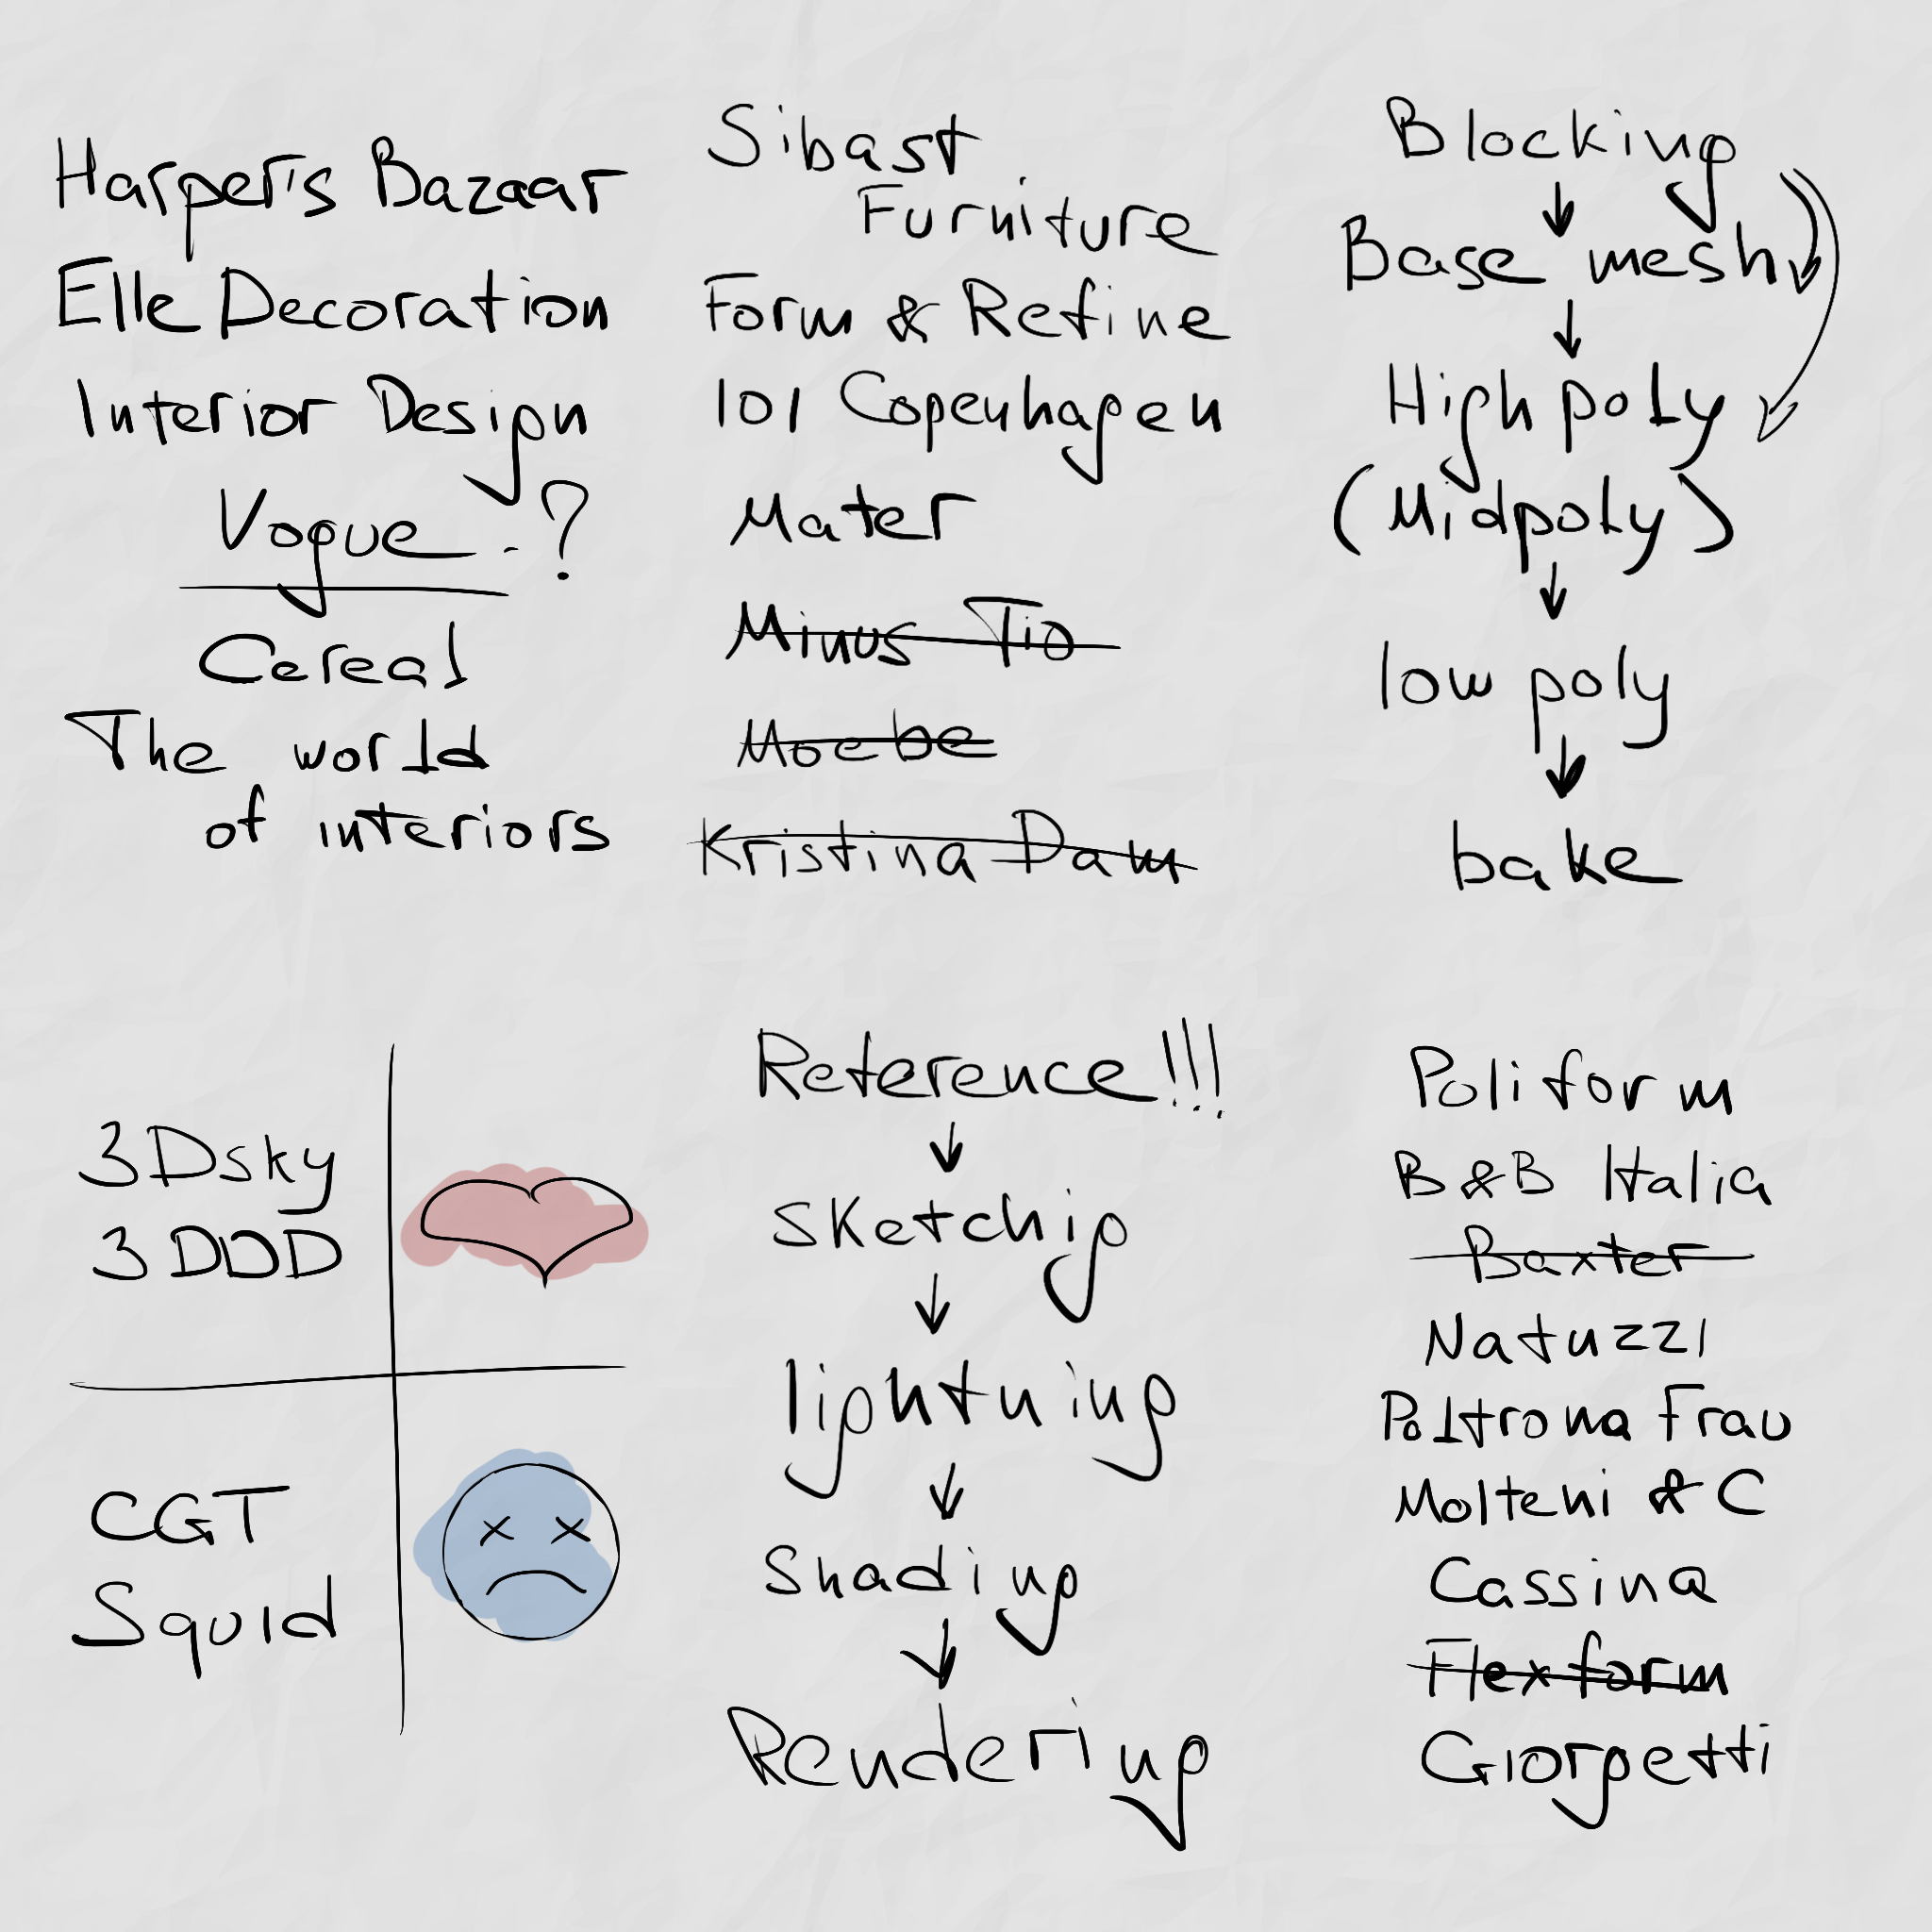 Harper's Bazaar
Elle Decoration
Interior Design
Vogue - ?
Cereal
The world
of interiors
Sibast
Furniture
Form & Refine
101 Copenhagen
Mater
Minus Tio
Moebe
Kristina Dam
Blocking
↓
Base mesh
↓
High poly
(Midpoly)
↓
low poly
↓
bake
3Dsky
3DDD
CGT
Squid
Reference!!!
↓
Sketchig
↓
lightning
↓
Shading
↓
Rendering
Poliform
B&B Italia
Baxter
Natuzzi
Poltrona Frau
Molteni & C
Cassina
Flexform
Giorgetti